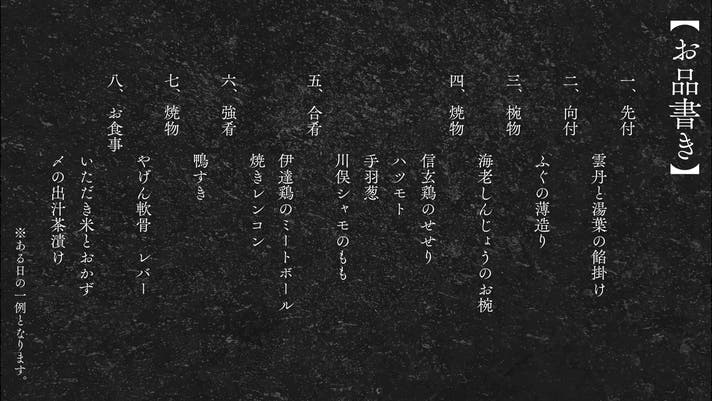 【お品書き】
一、先付
雲丹と湯葉の餡掛け
二、向付
ふぐの薄造り
三、椀物
海老しんじょうのお椀
四、焼物
信玄鶏のせせり
ハツモト
手羽葱
川俣シャモのもも
五、合肴
伊達鶏のミートボール
焼きレンコン
六、強肴
鴨すき
七、焼物
やげん軟骨　レバー
八、お食事
いただき米とおかず
〆の出汁茶漬け
※ある日の一例となります。